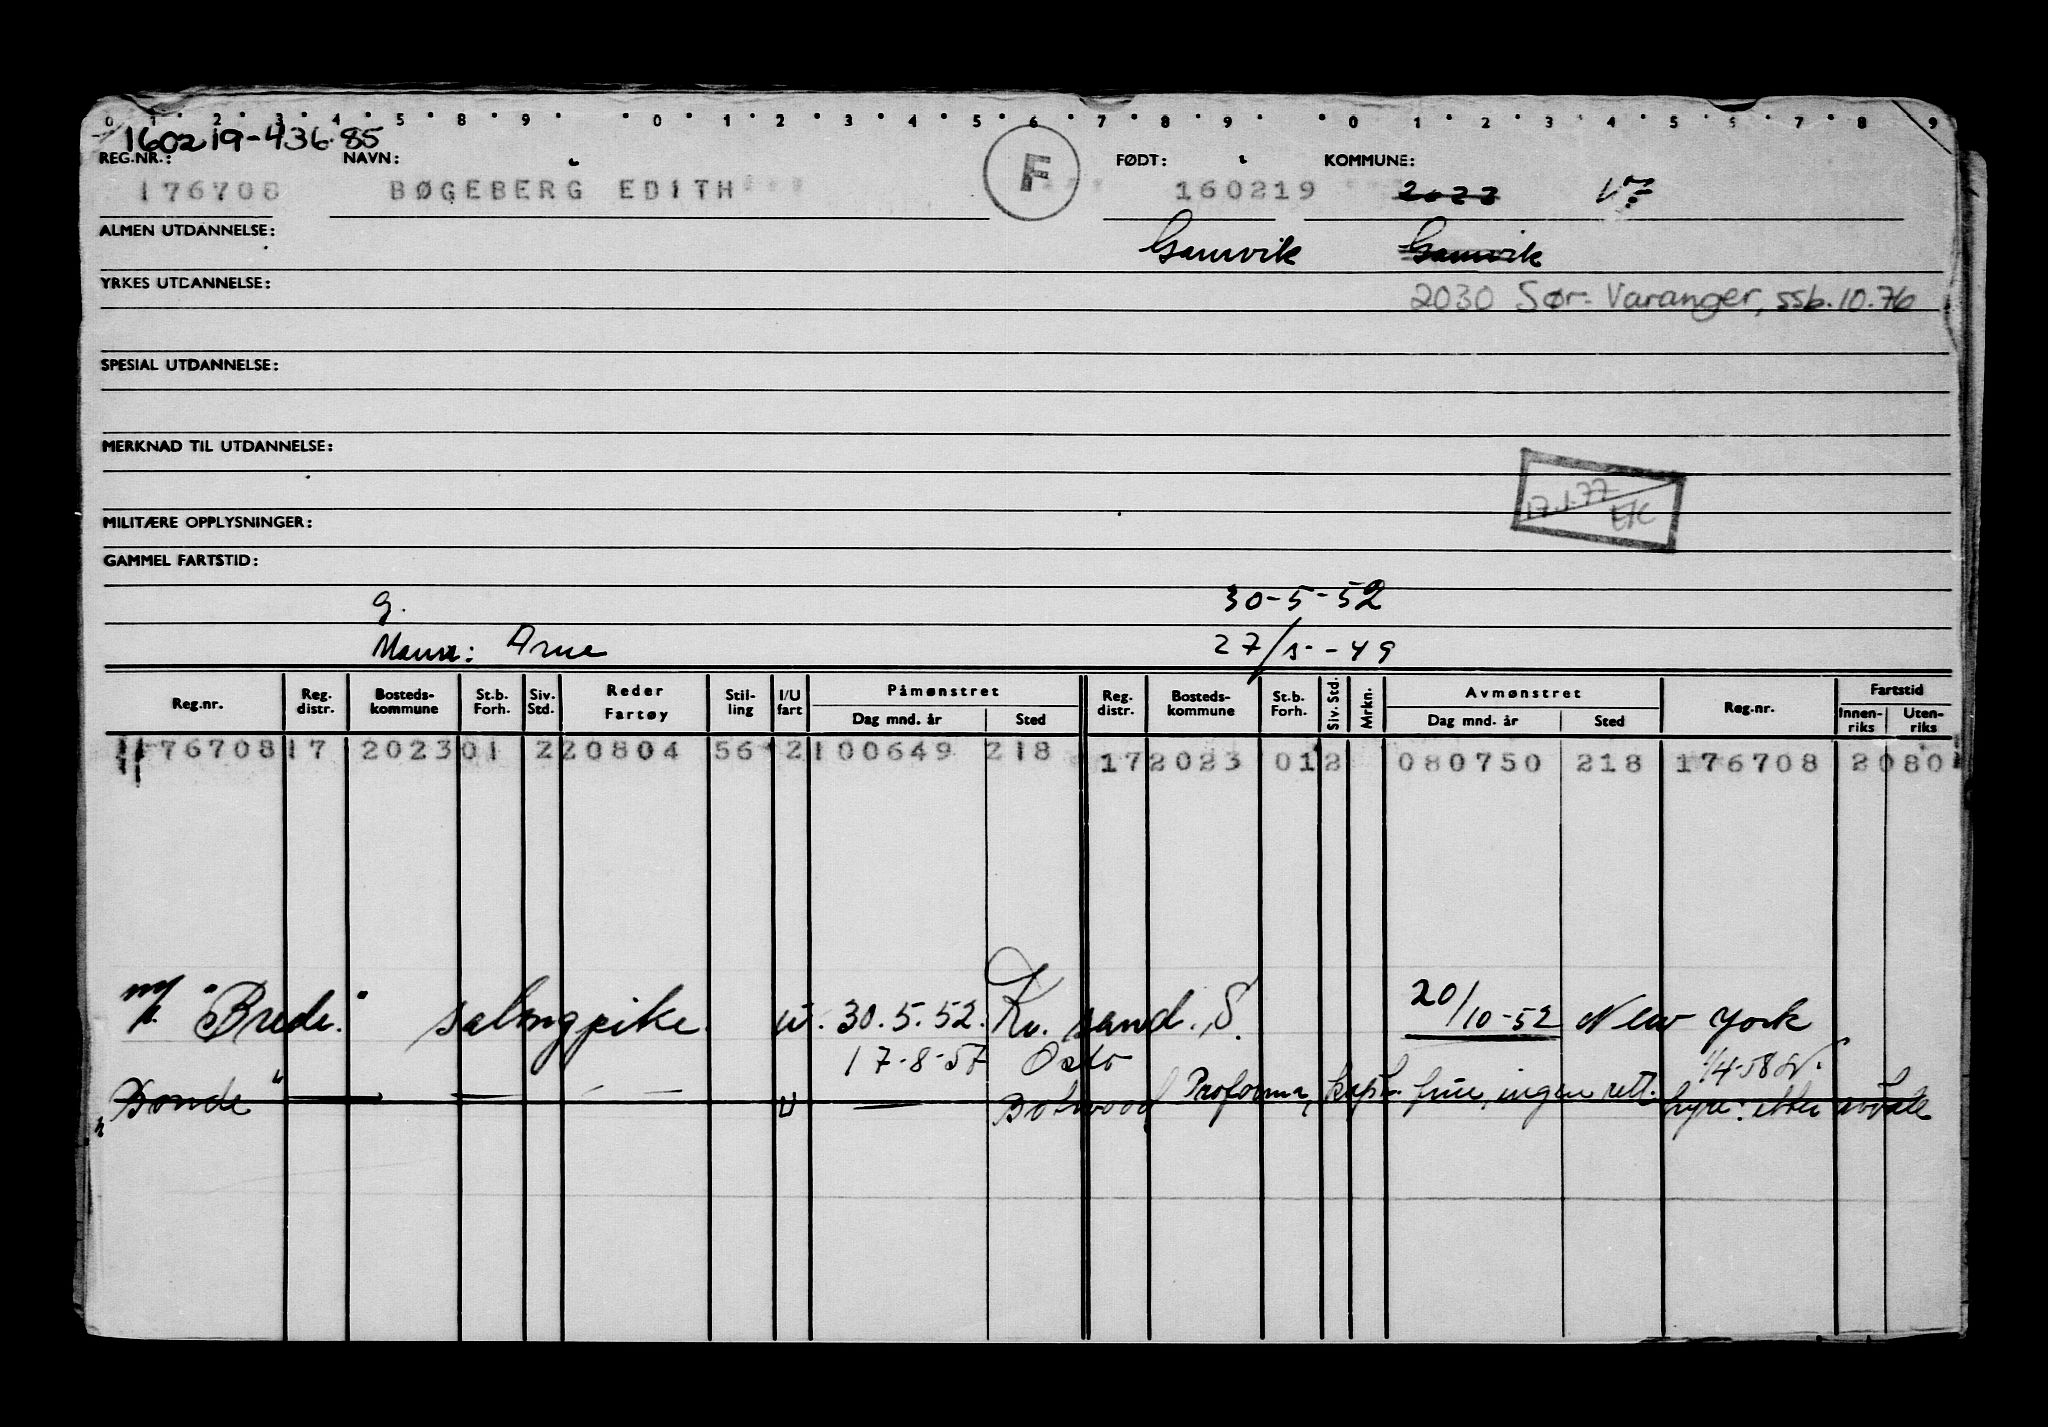 0 1 2 3 4 5 8 9 0 1 2 3 4 5 6 7 8 9 0 1 2 3 4 5 6 7 8 9
160219-436.85
REG.NR.: NAVN: F FØDT: KOMMUNE:
176708 BØGEBERG EDITH 160219 2023
ALMEN UTDANNELSE: Gamvik Gamvik
YRKES UTDANNELSE: 2030 Sør-Varanger, ssb.10.76
SPESIAL UTDANNELSE:
MERKNAD TIL UTDANNELSE:
17.1.77
MILITÆRE OPPLYSNINGER:
GAMMEL FARTSTID:
g. 30-5-52
Mann: Arne 27/5-49
Reg.nr. Reg. distr. Bosteds-kommune St.b. Forh. Siv. Std. Reder Fartøy Stil-ling I/U fart Påmønstret Dag mnd. år Sted Reg. distr. Bosteds-kommune St.b. Forh. Siv. Std. Mrkn. Avmønstret Dag mnd. år Sted Reg.nr. Fartstid Innen-riks Uten-riks
176708 17 2023 01 2 20804 56 2 100649 218 17 2023 01 2 080750 218 176708 2080
m/t "Brede" salongpike u. 30.5.52. Kr. sand. S. 20/10-52 New York
17-8-57 Oslo 1/4-58
"Bonde" — — — — U — Botwood Proforma, kapt. frue, ingen rett. hyre: etter avtale